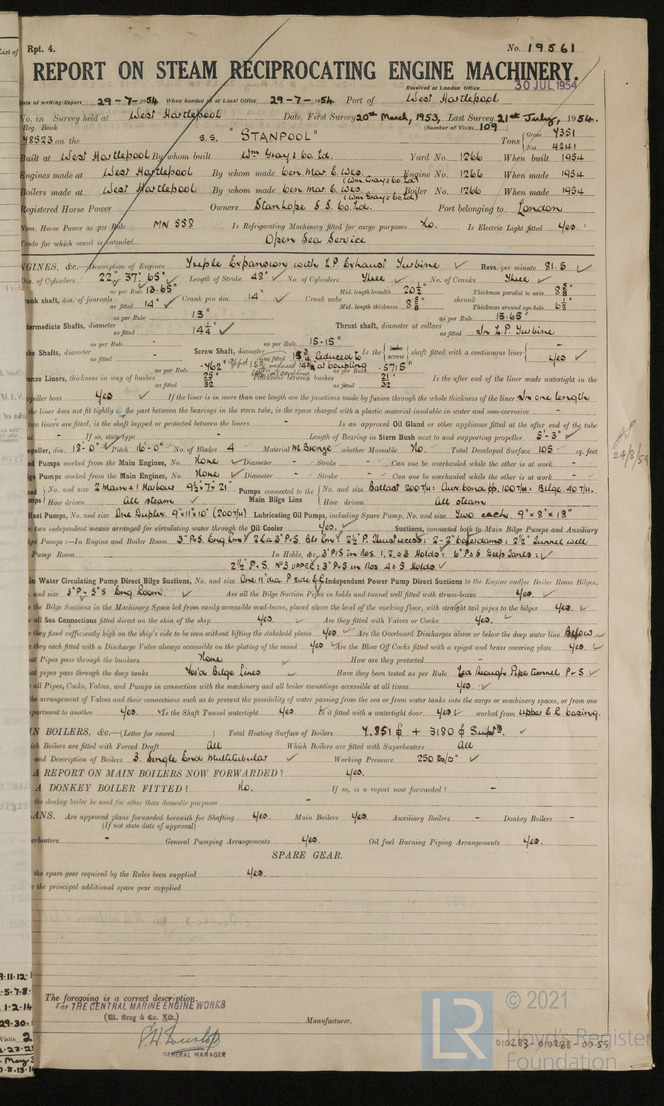 List of
Rpt. 4.
No. 19561
REPORT ON STEAM RECIPROCATING ENGINE MACHINERY.
Received at London Office 30 JUL 1954
Date of writing Report 29-7-1954 When handed in at Local Office 29-7-1954 Port of West Hartlepool
No. in Survey held at West Hartlepool Date, First Survey 20th March, 1953, Last Survey 21st July, 1954.
Reg. Book (Number of Visits 109)
48523 on the S.S. "STANPOOL" Tons Gross 7351
Net 4241
Built at West Hartlepool By whom built Wm Gray & Co Ld. Yard No. 1266 When built 1954
Engines made at West Hartlepool By whom made Cen. Mar. E. Wks. (Wm Gray & Co Ld) Engine No. 1266 When made 1954
Boilers made at West Hartlepool By whom made Cen. Mar. E. Wks. (Wm Gray & Co Ld) Boiler No. 1266 When made 1954
Registered Horse Power Owners Stanhope S.S. Co. Ltd. Port belonging to London
Nom. Horse Power as per Rule MN 558 Is Refrigerating Machinery fitted for cargo purposes No. Is Electric Light fitted Yes.
Trade for which vessel is intended Open Sea Service
ENGINES, &c.—Description of Engines Triple Expansion with L.P. Exhaust Turbine Revs. per minute 81.5
Dia. of Cylinders 22" 37" 65" Length of Stroke 48" No. of Cylinders Three No. of Cranks Three
Crank shaft, dia. of journals as per Rule 13.65" as fitted 14" Crank pin dia. 14" Crank webs Mid. length breadth 20½" Thickness parallel to axis 8⅝"
Mid. length thickness 8⅝" shrunk Thickness around eye-hole 6⅛"
Intermediate Shafts, diameter as per Rule 13" as fitted 14¼" Thrust shaft, diameter at collars as per Rule 13.65" as fitted In L.P. Turbine
Tube Shafts, diameter as per Rule - as fitted - Screw Shaft, diameter as per Rule 15.15" as fitted reduced to at coupling Is the screw shaft fitted with a continuous liner Yes
Bronze Liners, thickness in way of bushes as per Rule .762" as fitted 25/32 Thickness between bushes as per Rule .5715" as fitted 21/32 Is the after end of the liner made watertight in the
propeller boss Yes If the liner is in more than one length are the junctions made by fusion through the whole thickness of the liner In one length
If the liner does not fit tightly at the part between the bearings in the stern tube, is the space charged with a plastic material insoluble in water and non-corrosive -
If two liners are fitted, is the shaft lapped or protected between the liners - Is an approved Oil Gland or other appliance fitted at the after end of the tube
- If so, state type - Length of Bearing in Stern Bush next to and supporting propeller 5'-3"
Propeller, dia. 18'-0" Pitch 16'-0" No. of Blades 4 Material M. Bronze whether Moveable No. Total Developed Surface 105 sq. feet
Feed Pumps worked from the Main Engines, No. None Diameter - Stroke - Can one be overhauled while the other is at work -
Bilge Pumps worked from the Main Engines, No. None Diameter - Stroke - Can one be overhauled while the other is at work -
No. and size 2 Main & 1 Harbour 9½ × 7 × 21" Pumps connected to the Main Bilge Line No. and size Ballast 200 T/H. Aux. bond. pp. 100 T/H. Bilge 40 T/H.
How driven All steam How driven All steam
Ballast Pumps, No. and size One Duplex 9"×11"×10" (200 T/H) Lubricating Oil Pumps, including Spare Pump, No. and size Two each 9"×8"×18"
Are two independent means arranged for circulating water through the Oil Cooler Yes. Suctions, connected both to Main Bilge Pumps and Auxiliary
Bilge Pumps:—In Engine and Boiler Room
Pump Room In Holds, &c. 3" P & S in Nos. 1, 2, & 3 Holds: 6" P & S Deep Tanks:
2½" P. S. No 3 UPPER: 3" P. S in Nos. 4 & 5 Holds
Main Water Circulating Pump Direct Bilge Suctions, No. and size One 11" dia P. side E.R. Independent Power Pump Direct Suctions to the Engine and/or Boiler Room Bilges,
No. and size. 3" P - 5" S Eng. Room. Are all the Bilge Suction Pipes in holds and tunnel well fitted with strum-boxes Yes.
Are the Bilge Suctions in the Machinery Space led from easily accessible mud-boxes, placed above the level of the working floor, with straight tail pipes to the bilges Yes.
Are all Sea Connections fitted direct on the skin of the ship Yes. Are they fitted with Valves or Cocks Yes.
Are they fixed sufficiently high on the ship's side to be seen without lifting the stokehold plates Yes Are the Overboard Discharges above or below the deep water line Below
Are they each fitted with a Discharge Valve always accessible on the plating of the vessel Yes Are the Blow Off Cocks fitted with a spigot and brass covering plate Yes.
What Pipes pass through the bunkers None How are they protected -
What pipes pass through the deep tanks Hold Bilge Lines Have they been tested as per Rule Yes through Pipe tunnel P & S
Are all Pipes, Cocks, Valves, and Pumps in connection with the machinery and all boiler mountings accessible at all times Yes.
Is the arrangement of Valves and their connections such as to prevent the possibility of water passing from the sea or from water tanks into the cargo or machinery spaces, or from one
compartment to another Yes. Is the Shaft Tunnel watertight Yes Is it fitted with a watertight door Yes worked from upper E.R. casing.
MAIN BOILERS, &c.—(Letter for record ) Total Heating Surface of Boilers 7,851 ф + 3180 ф Suptr.
Which Boilers are fitted with Forced Draft All Which Boilers are fitted with Superheaters All
No. and Description of Boilers 3. Single End Multitubular Working Pressure 250 lbs/□"
IS A REPORT ON MAIN BOILERS NOW FORWARDED? Yes.
IS A DONKEY BOILER FITTED? No. If so, is a report now forwarded? -
Is the donkey boiler to be used for other than domestic purposes -
PLANS. Are approved plans forwarded herewith for Shafting Yes. Main Boilers Yes. Auxiliary Boilers - Donkey Boilers -
(If not state date of approval)
Superheaters - General Pumping Arrangements Yes Oil fuel Burning Piping Arrangements Yes.
SPARE GEAR.
Has the spare gear required by the Rules been supplied Yes.
State the principal additional spare gear supplied
24/8/54
The foregoing is a correct description.
For THE CENTRAL MARINE ENGINE WORKS
(Wm. Gray & Co. Ltd.)
Manufacturer.
GENERAL MANAGER
LR
© 2021
Lloyd's Register
Foundation
010283-010288-0055